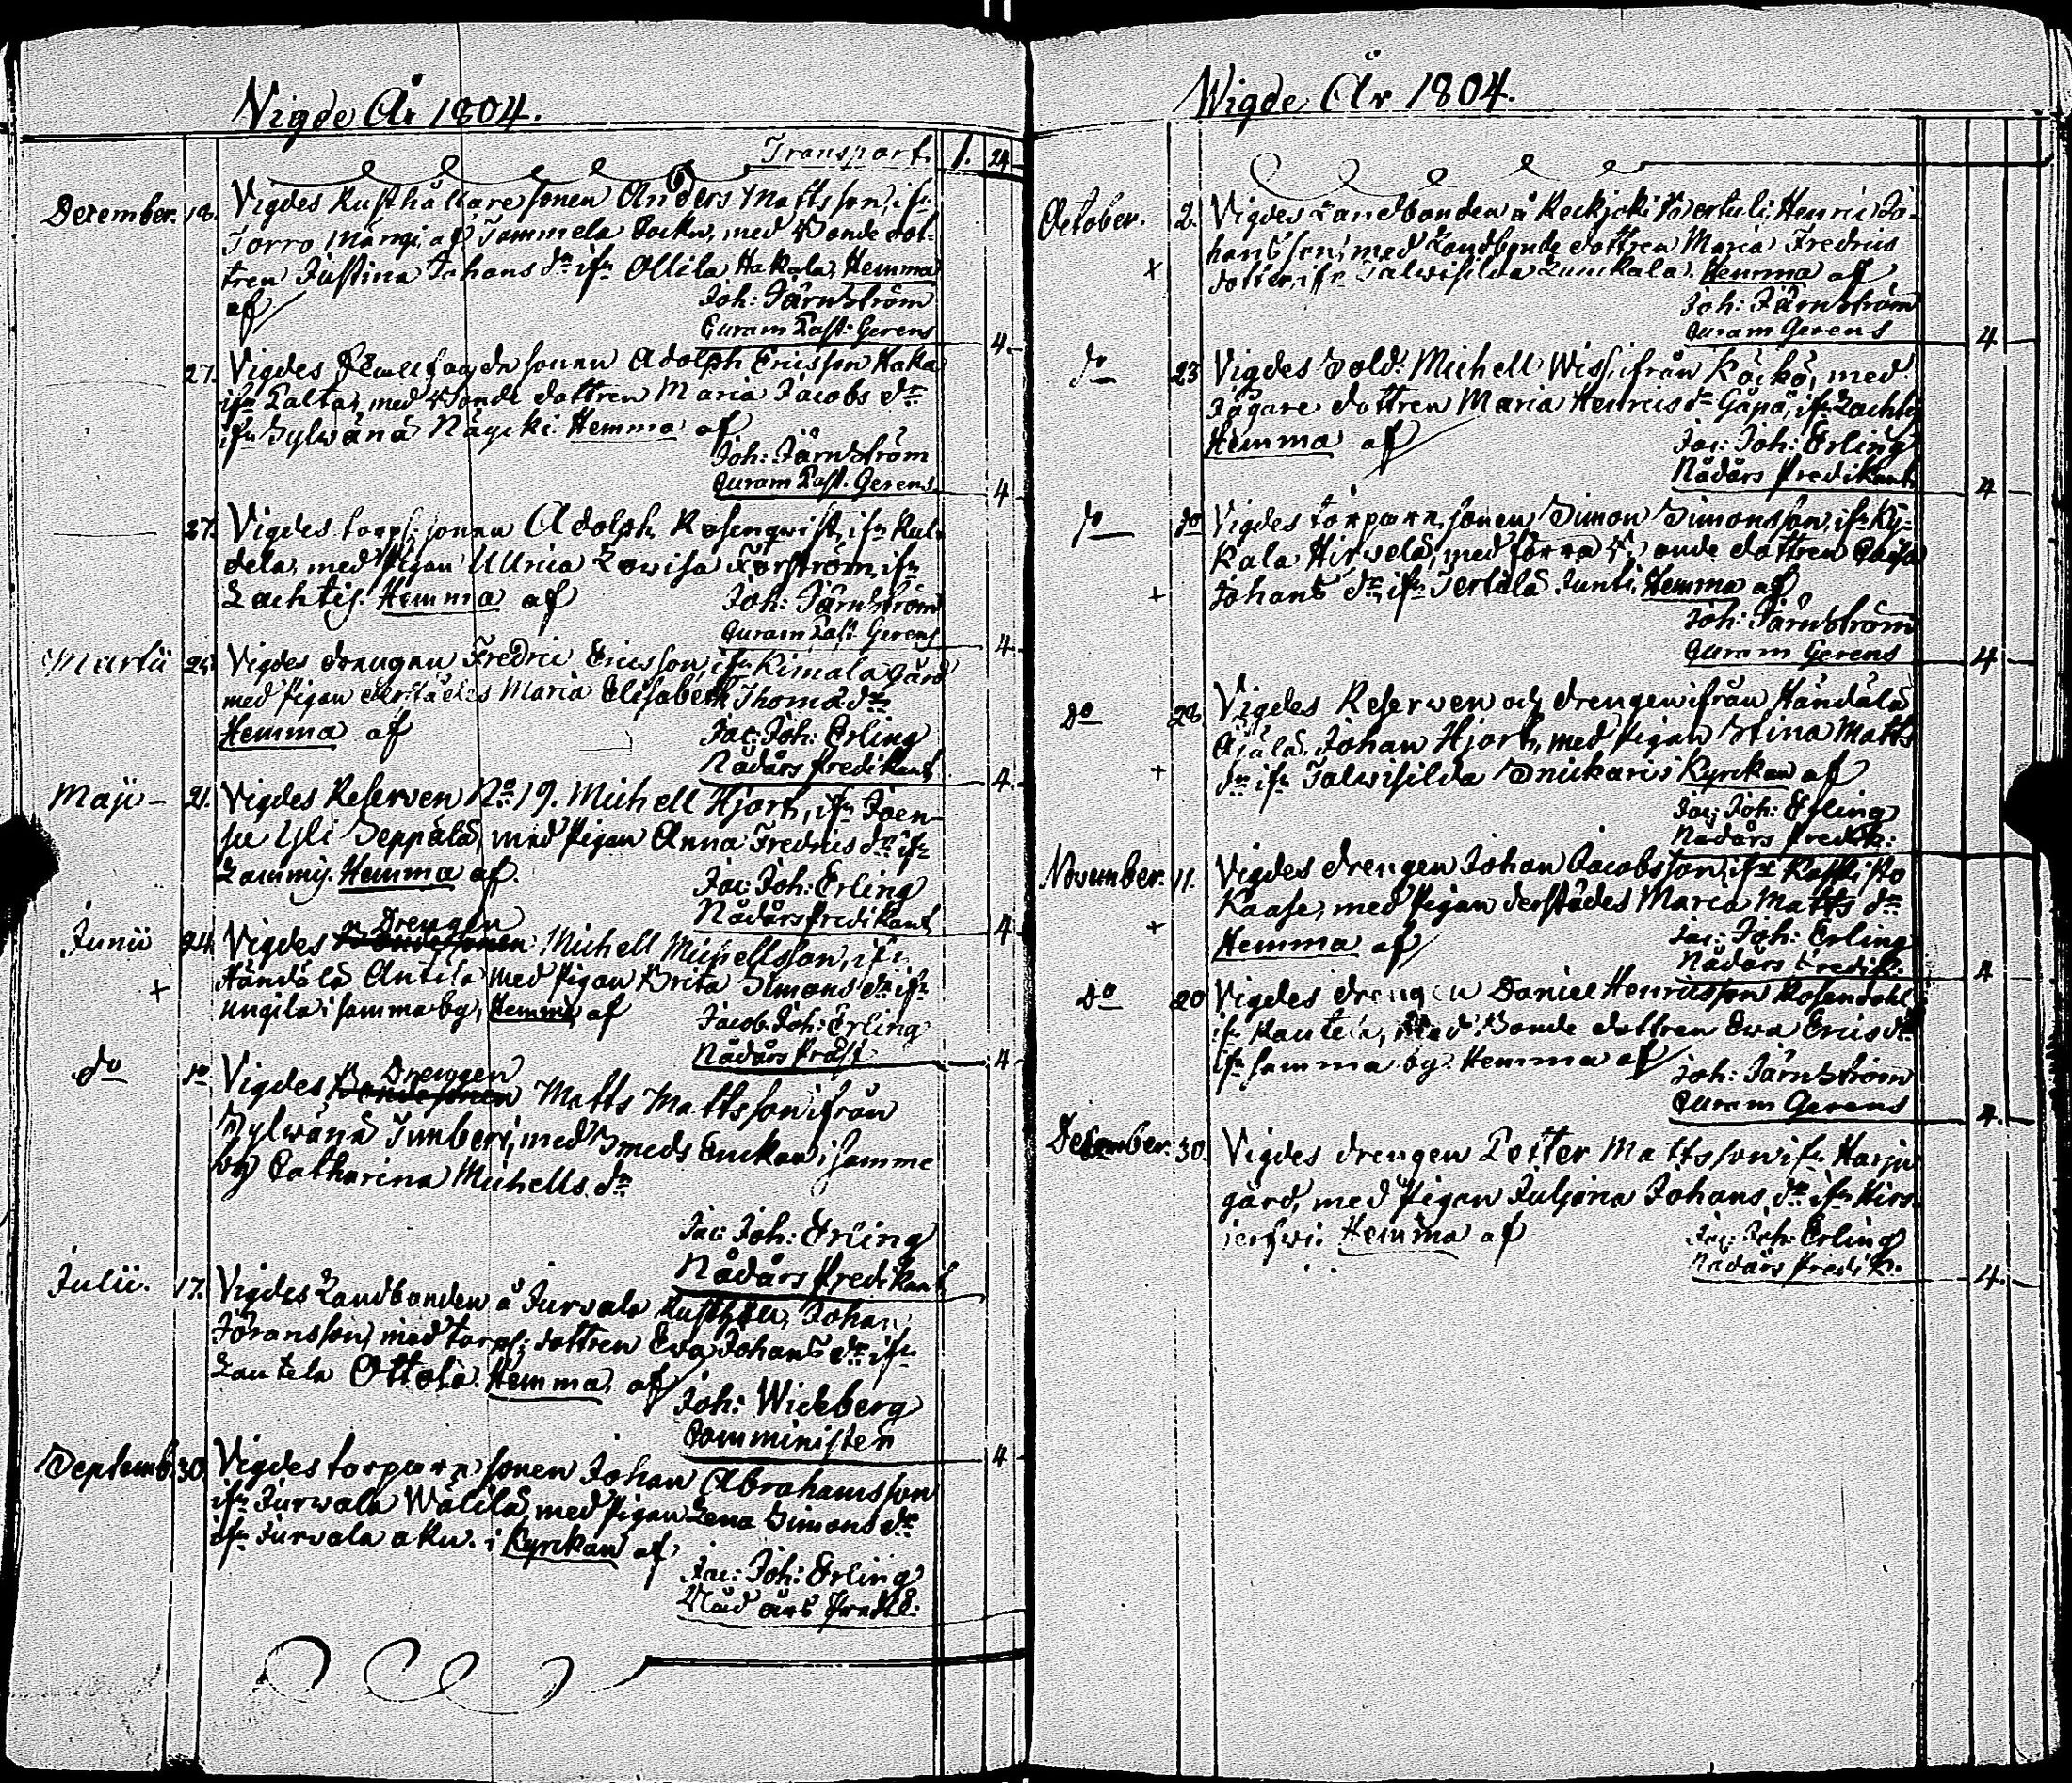 Vigde År 1804.
Transport. 1. 24
December. 18. Vigdes Rusthållare sonen Anders Mattsson, ifr.
Torro Mängi, af Tammela Sockn, med Bonde dot-
tren Justina Johans dr ifn Ollila Hakala, Hemma
af
Joh: Järnström
Curam Past: Gerens 4.
27. Vigdes sonen Adolph Ericsson Haka
ifn Palta, med Bonde dottren Maria Jacobs dr
ifn Sylwänä Näycki. Hemma af
Joh: Järnström
Curam Past. Gerens 4
27. Vigdes torp: sonen Adolph Rosenqwist, ifn Kul-
dela, med Pigan Ullrica Lowisa Forström, ifn
Lachtis. Hemma af
Joh: Järnström
Curam Past. Gerens 4
Martii 25. Vigdes drengen Fredric Ericsson, ifn Kimala gård
med Pigan derstädes Maria Elisabeth Thomæ dr
Hemma af
Jac: Joh: Erling
Nådårs Predikant 4.
Maji - 21. Vigdes Reserven No 19. Michell Hjort, ifn Joen-
su Yli Seppälä, med Pigan Anna Fredrics dr ifn
Lammij. Hemma af.
Jac: Joh: Erling
Nådårs Predikant 4
Drengen
Junii 24. Vigdes Bondesonen Michell Michellsson, ifn
Händälä Antila med Pigan Brita Simons dr ifn
Ungila i samma by, Hemma af
Jacob Joh: Erling
Nådårs Präst 4
Drengen
do do Vigdes Bondesonen Matts Mattsson ifrån
Sylwänä Timberi, med Smeds Enckan i samma
by Catharina Michells dr
Jac: Joh: Erling
Nådårs Predikant
Julii. 17. Vigdes Landbonden å Jurvala Johan
Jöransson, med torp: dottren Eva Johans dr ifn
Lautela Ottola. Hemma af
Joh: Wickberg
Comminister 4
Septemb. 30. Vigdes torpare sonen Johan Abrahamsson
ifn Jurwala Wälilä, med Pigan Lena Simons dr
ifn Jurvala i Kyrckan af
Jac: Joh: Erling
Nådårs Predik:
Wigde År 1804.
October. 2. Vigdes Landbonden å Reckjoki Henric Jo-
hansson, med Landbonde dottren Maria Fredrics
dotter, ifn Talwisilda Lunckala. Hemma af
Joh: Järnström
Curam Gerens 4
do 23 Vigdes Sold: Michell Wiss, ifrån Köickö, med
Jägare dottren Maria Henrics dr Gäpä, ifn Lachtis
Hemma af
Jac: Joh: Erling
Nådårs Predikant 4
do do Vigdes torpare sonen Simon Simonsson, ifn Ky-
kala Hirwelä, med förra Bonde dottren Caisa
Johans dr ifn Tertälä Junti, Hemma af
Joh: Järnström
Curam Gerens 4
do 28 Vigdes Reserwen och drengen ifrån Händälä
Äjälä, Johan Hjort, med Pigan Stina Matts
dr ifn Talwisilda Snickaris Kyrckan af
Jac: Joh: Erling
Nådårs Predik:
November. 11. Vigdes drengen Johan Jacobsson, ifn Kaskisto
Kaase, med Pigan derstädes Maria Matts dr
Hemma af
Jac: Joh: Erling
Nådårs Predik. 4
do 20 Vigdes drengen Daniel Henricsson Rosendahl
ifn Rautela, med Bonde dottren Ewa Erics dr
ifn samma by. Hemma af
Joh: Järnström
Curam Gerens 4.
December. 30. Vigdes drengen Petter Mattsson ifn Harju
gård, med Pigan Juljana Johans dr ifn Hirs-
jerfwi. Hemma af
Jac: Joh: Erling
Nådårs Predik. 4.